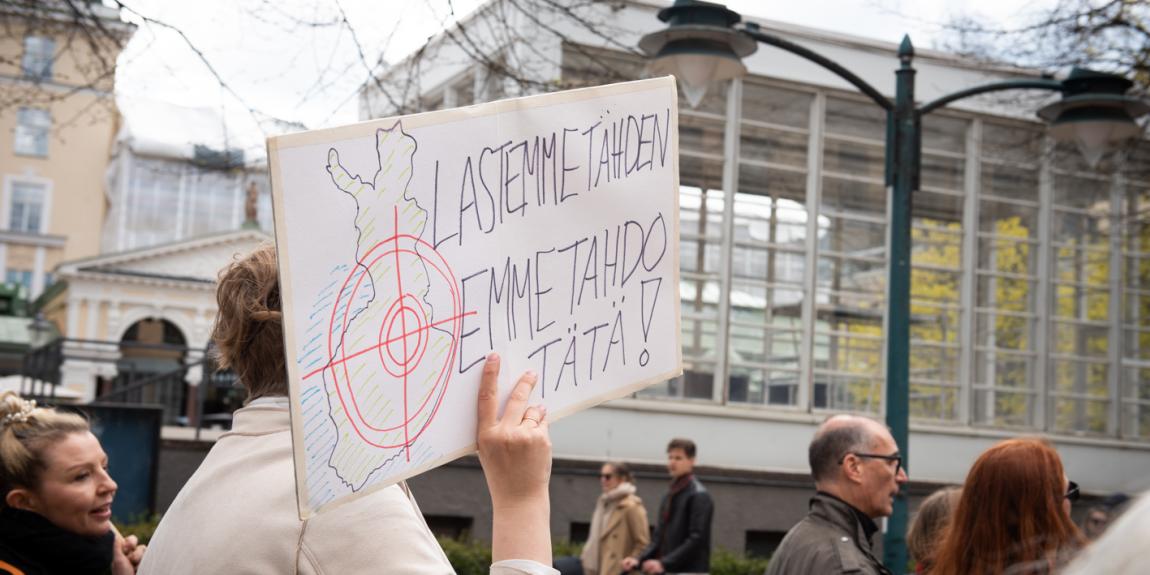 LASTEMME TÄHDEN
EMME TAHDO
TÄTÄ!